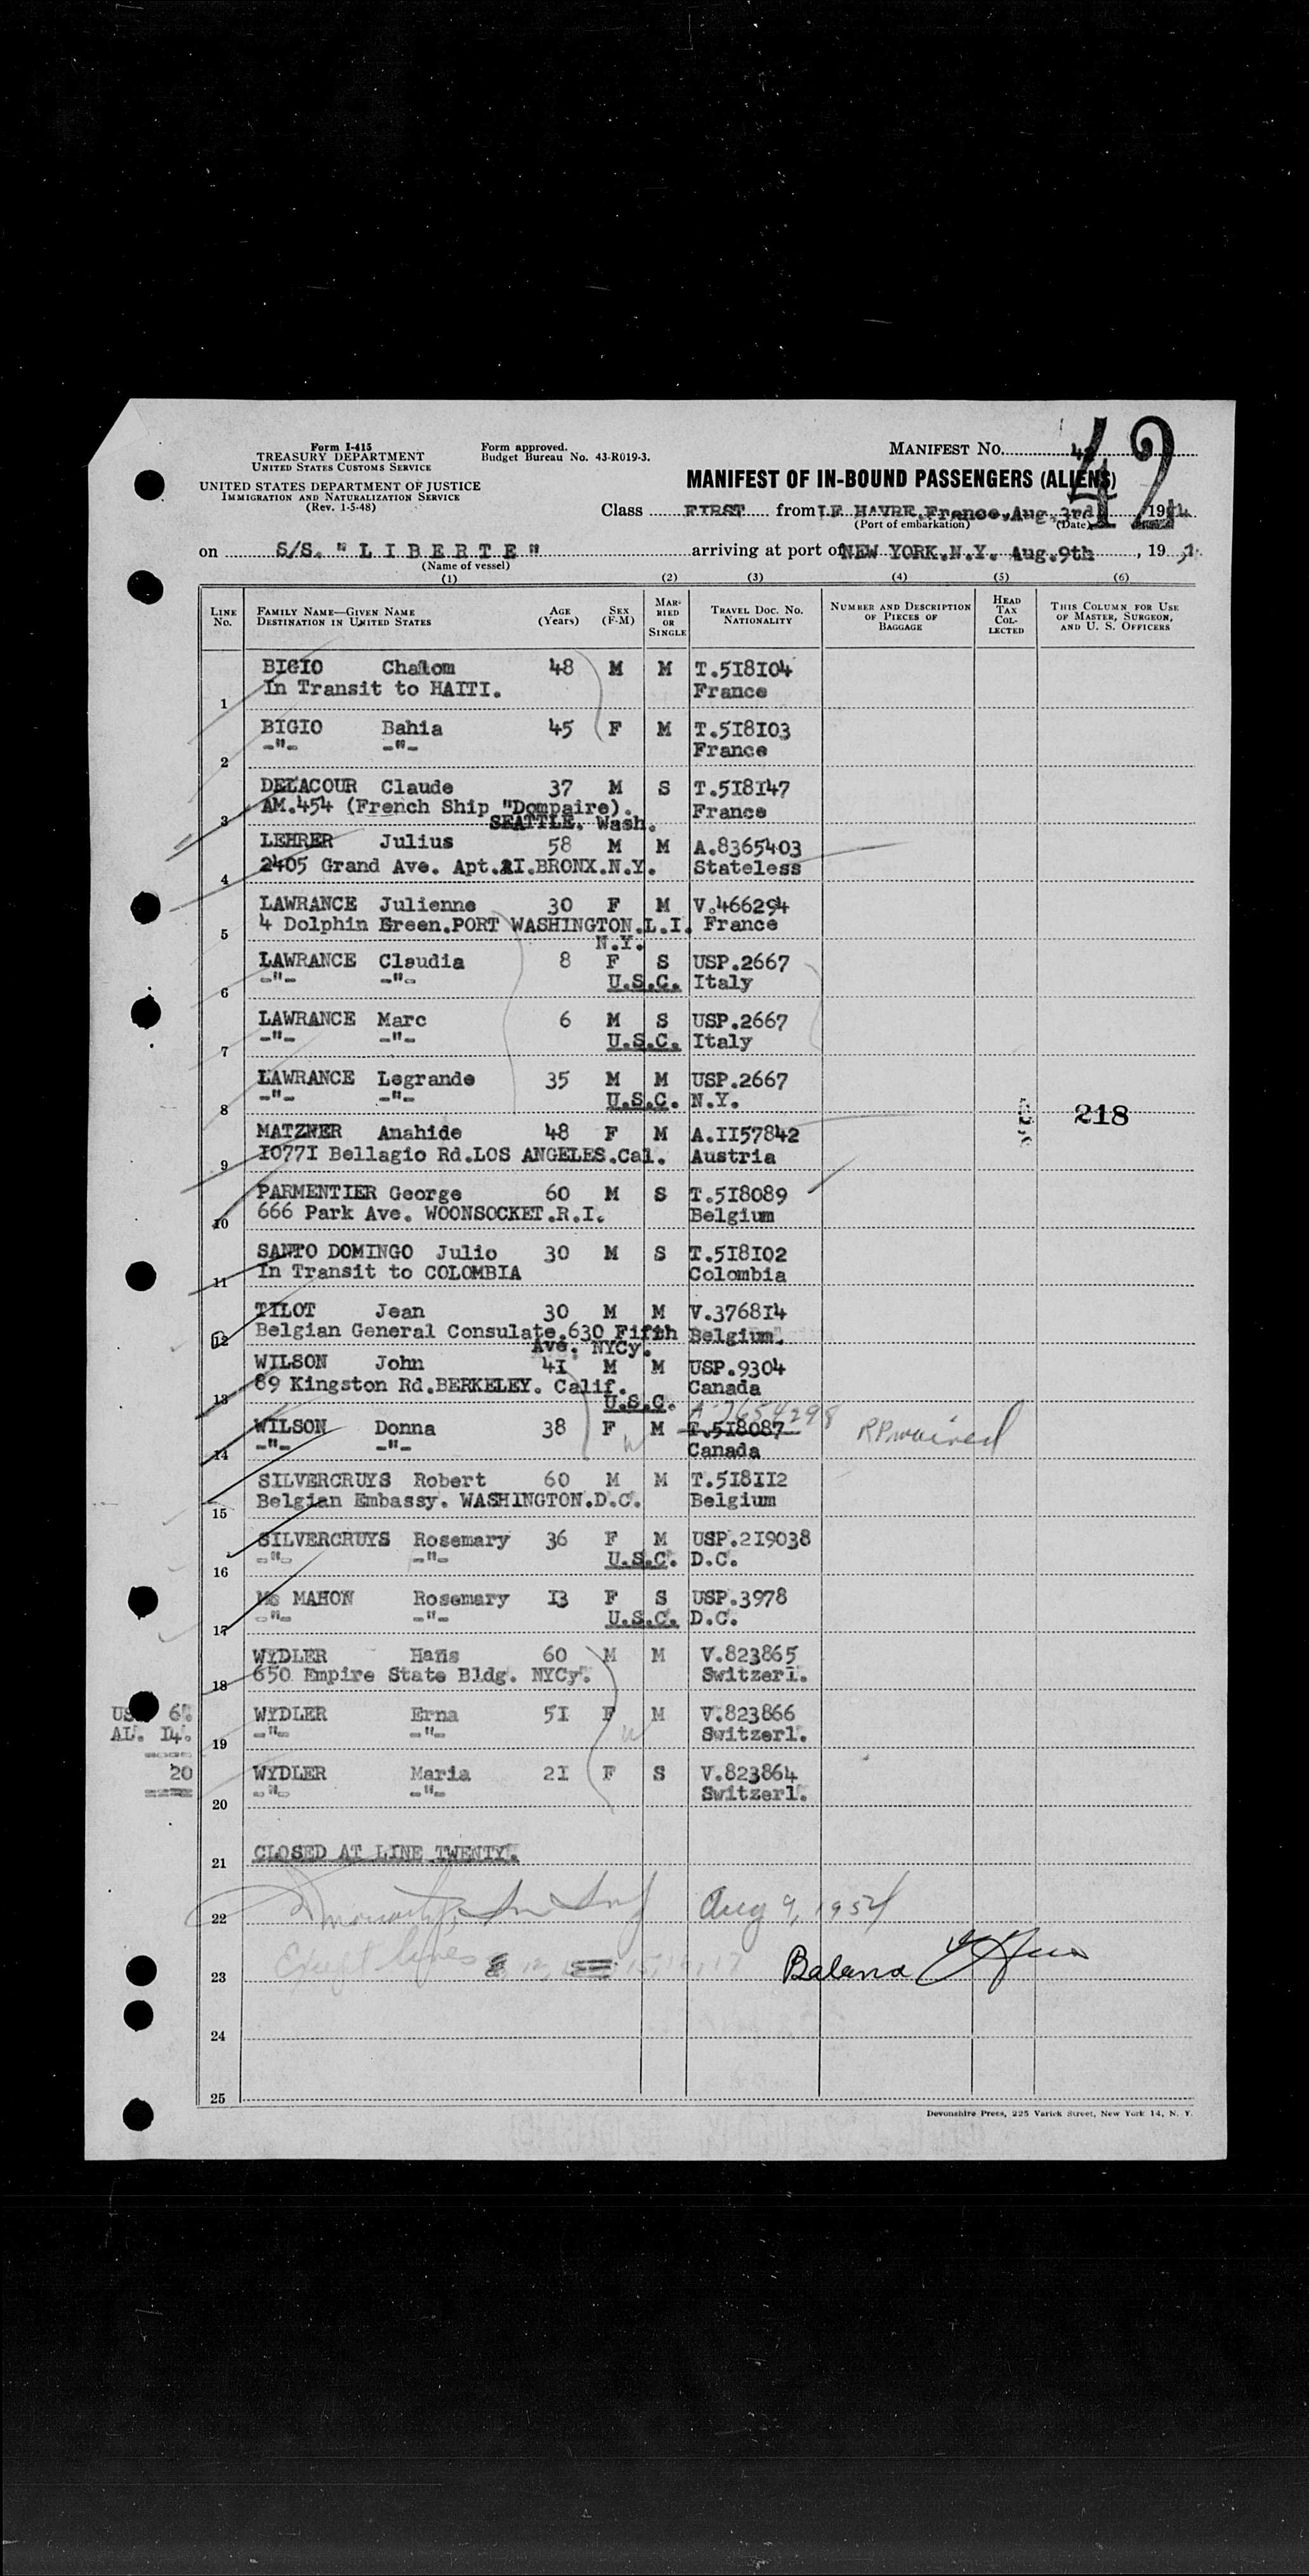 Form I-415
TREASURY DEPARTMENT
UNITED STATES CUSTOMS SERVICE
UNITED STATES DEPARTMENT OF JUSTICE
IMMIGRATION AND NATURALIZATION SERVICE
(Rev. 1-5-48)
Form approved.
Budget Bureau No. 43-R019-3.
MANIFEST No. 42
42
MANIFEST OF IN-BOUND PASSENGERS (ALIENS)
Class FIRST from LE HAVRE.France.,Aug.3rd 1954
(Port of embarkation) (Date)
on S/S. "LIBERTE" arriving at port of NEW YORK.N.Y. Aug.9th , 19
(Name of vessel)
(1) (2) (3) (4) (5) (6)
LINE No. FAMILY NAME—GIVEN NAME DESTINATION IN UNITED STATES AGE (Years) SEX (F-M) MARRIED OR SINGLE TRAVEL DOC. NO. NATIONALITY NUMBER AND DESCRIPTION OF PIECES OF BAGGAGE HEAD TAX COLLECTED THIS COLUMN FOR USE OF MASTER, SURGEON, AND U. S. OFFICERS
BIGIO Chalom 48 M M T.518104
1 In Transit to HAITI. France
BIGIO Bahia 45 F M T.518103
2 -"- -"- France
DELACOUR Claude 37 M S T.518147
3 AM.454 (French Ship "Dompaire). France
SEATTLE. Wash.
LEHRER Julius 58 M M A.8365403
4 2405 Grand Ave. Apt.2I.BRONX.N.Y. Stateless
LAWRANCE Julienne 30 F M V.466294
5 4 Dolphin Green.PORT WASHINGTON.L.I. France
N.Y.
LAWRANCE Claudia 8 F S USP.2667
6 -"- -"- U.S.C. Italy
LAWRANCE Marc 6 M S USP.2667
7 -"- -"- U.S.C. Italy
LAWRANCE Legrande 35 M M USP.2667
8 -"- -"- U.S.C. N.Y.
218
MATZNER Anahide 48 F M A.II57842
9 I077I Bellagio Rd.LOS ANGELES.Cal. Austria
PARMENTIER George 60 M S T.518089
10 666 Park Ave. WOONSOCKET.R.I. Belgium
SANTO DOMINGO Julio 30 M S T.518102
11 In Transit to COLOMBIA Colombia
TILOT Jean 30 M M V.376814
12 Belgian General Consulate.630 Fifth Belgium.
Ave. NYCy.
WILSON John 41 M M USP.9304
13 89 Kingston Rd.BERKELEY. Calif. Canada
U.S.C. A-7654298
WILSON Donna 38 F M T.518087 RP waived
14 -"- -"- Canada
SILVERCRUYS Robert 60 M M T.518112
15 Belgian Embassy. WASHINGTON.D.C. Belgium
SILVERCRUYS Rosemary 36 F M USP.219038
16 -"- -"- U.S.C. D.C.
Mc MAHON Rosemary 13 F S USP.3978
17 -"- -"- U.S.C. D.C.
WYDLER Hans 60 M M V.823865
18 650 Empire State Bldg. NYCy. Switzerl.
US 6.
WYDLER Erna 51 F M V.823866
AL. 14.
19 -"- -"- Switzerl.
20
WYDLER Maria 21 F S V.823864
20 -"- -"- Switzerl.
21 CLOSED AT LINE TWENTY.
22 Aug 9, 1954
23 Except lines 12, 15, 16, 17
24
25
Devonshire Press, 225 Varick Street, New York 14, N. Y.